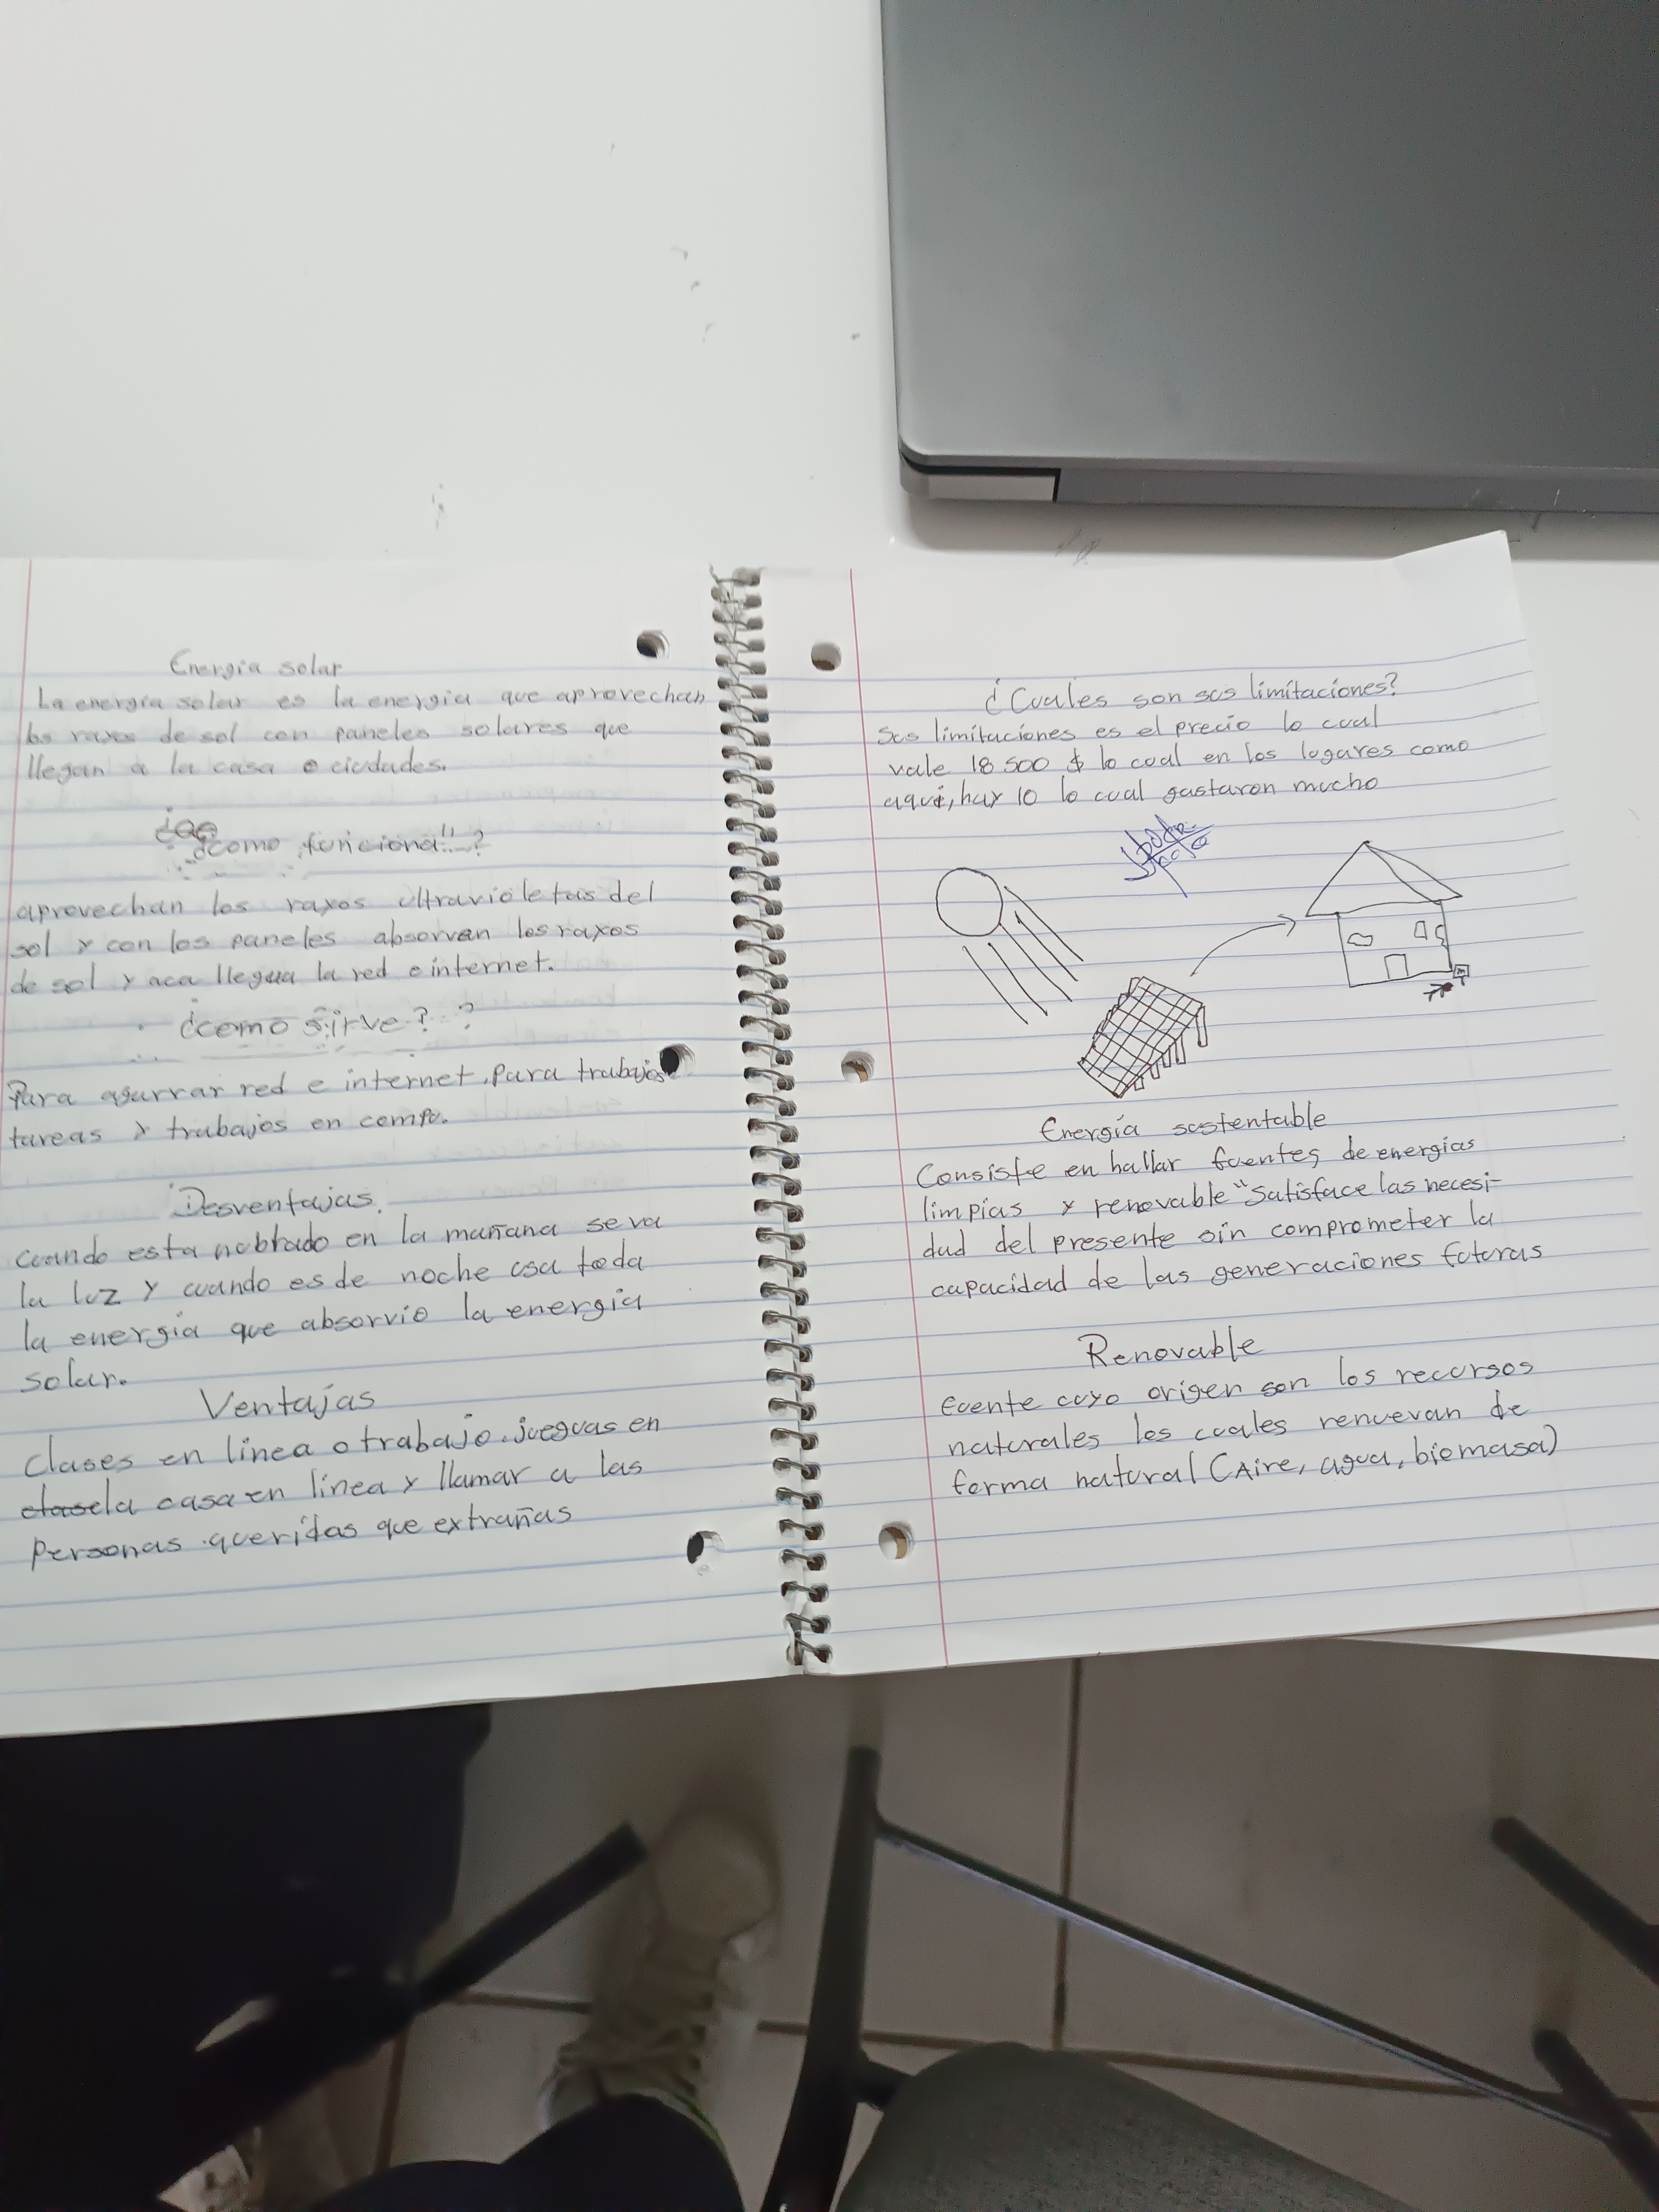 Energía solar
La energía solar es la energía que aprovechan
los raxos de sol con paneles solares que
llegan a la casa o ciudades.
¿como funciona!!?
aprovechan los raxos ultravioletas del
sol y con los paneles absorven los raxos
de sol y aca llegua la red e internet.
¿como sirve? ?
Para agarrar red e internet, para trabajos
tareas y trabajos en compu.
Desventajas.
cuando esta nublado en la mañana se va
la luz y cuando es de noche usa toda
la energía que absorvio la energía
solar.
Ventajas
Clases en línea o trabajo. jueguas en
la casa en línea y llamar a las
Personas queridas que extrañas
¿Cuales son sus limitaciones?
Sus limitaciones es el precio lo cual
vale 18 500 $ lo cual en los lugares como
aquí, hay 10 lo cual gastaron mucho
Energía sustentable
Consiste en hallar fuentes de energías
limpias y renovable "Satisface las necesi-
dad del presente sin comprometer la
capacidad de las generaciones futuras
Renovable
Fuente cuyo origen son los recursos
naturales los cuales renuevan de
forma natural (Aire, agua, biomasa)